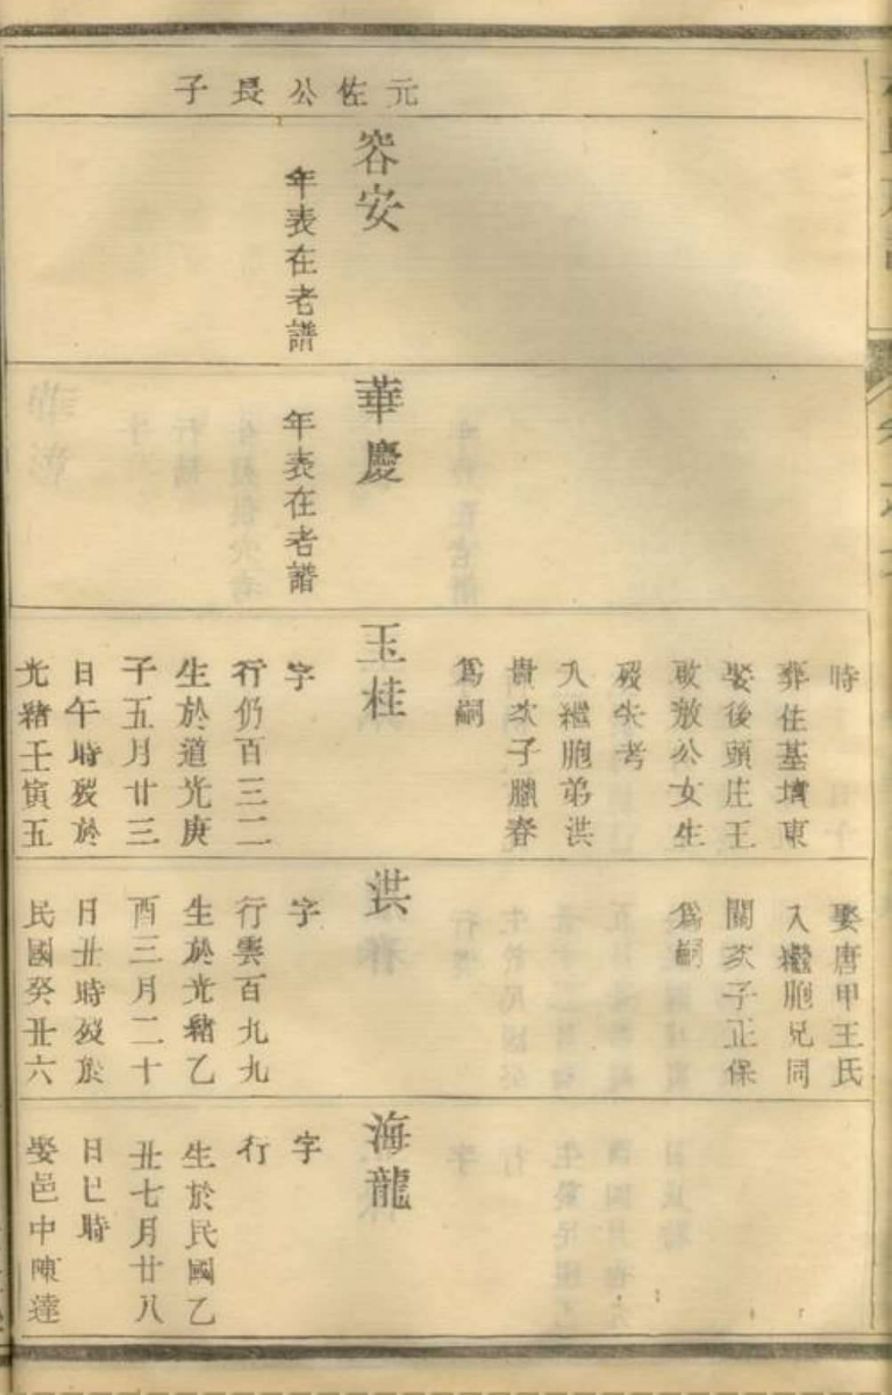 元佐公長子
容安
年表在老譜
華慶
年表在老譜
時
葬住基墳東
娶後頭庄王
敢敖公女生
歿失考
入繼胞弟洪
貴次子臘春
為嗣
玉桂
字
行仍百三二
生於道光庚
子五月廿三
日午時歿於
光緒壬寅五
娶唐甲王氏
入繼胞兄同
關次子正保
為嗣
洪
字
行雲百九九
生於光緒乙
酉三月二十
日丑時歿於
民國癸丑六
海龍
字
行
生於民國乙
丑七月廿八
日巳時
娶邑中陳達